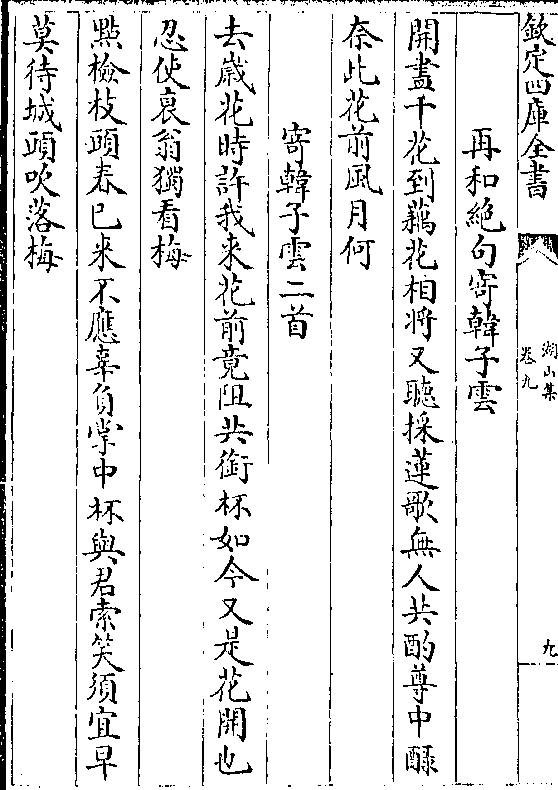 欽定四庫全書
湖山集
卷九
九
再和絶句寄韓子雲
開盡千花到藕花相將又聽採蓮歌無人共酌尊中醁
奈此花前風月何
寄韓子雲二首
去歲花時許我來花前竟阻共銜杯如今又是花開也
忍使衰翁獨看梅
㸃檢枝頭春已來不應辜負掌中杯與君索笑須宜早
莫待城頭吹落梅